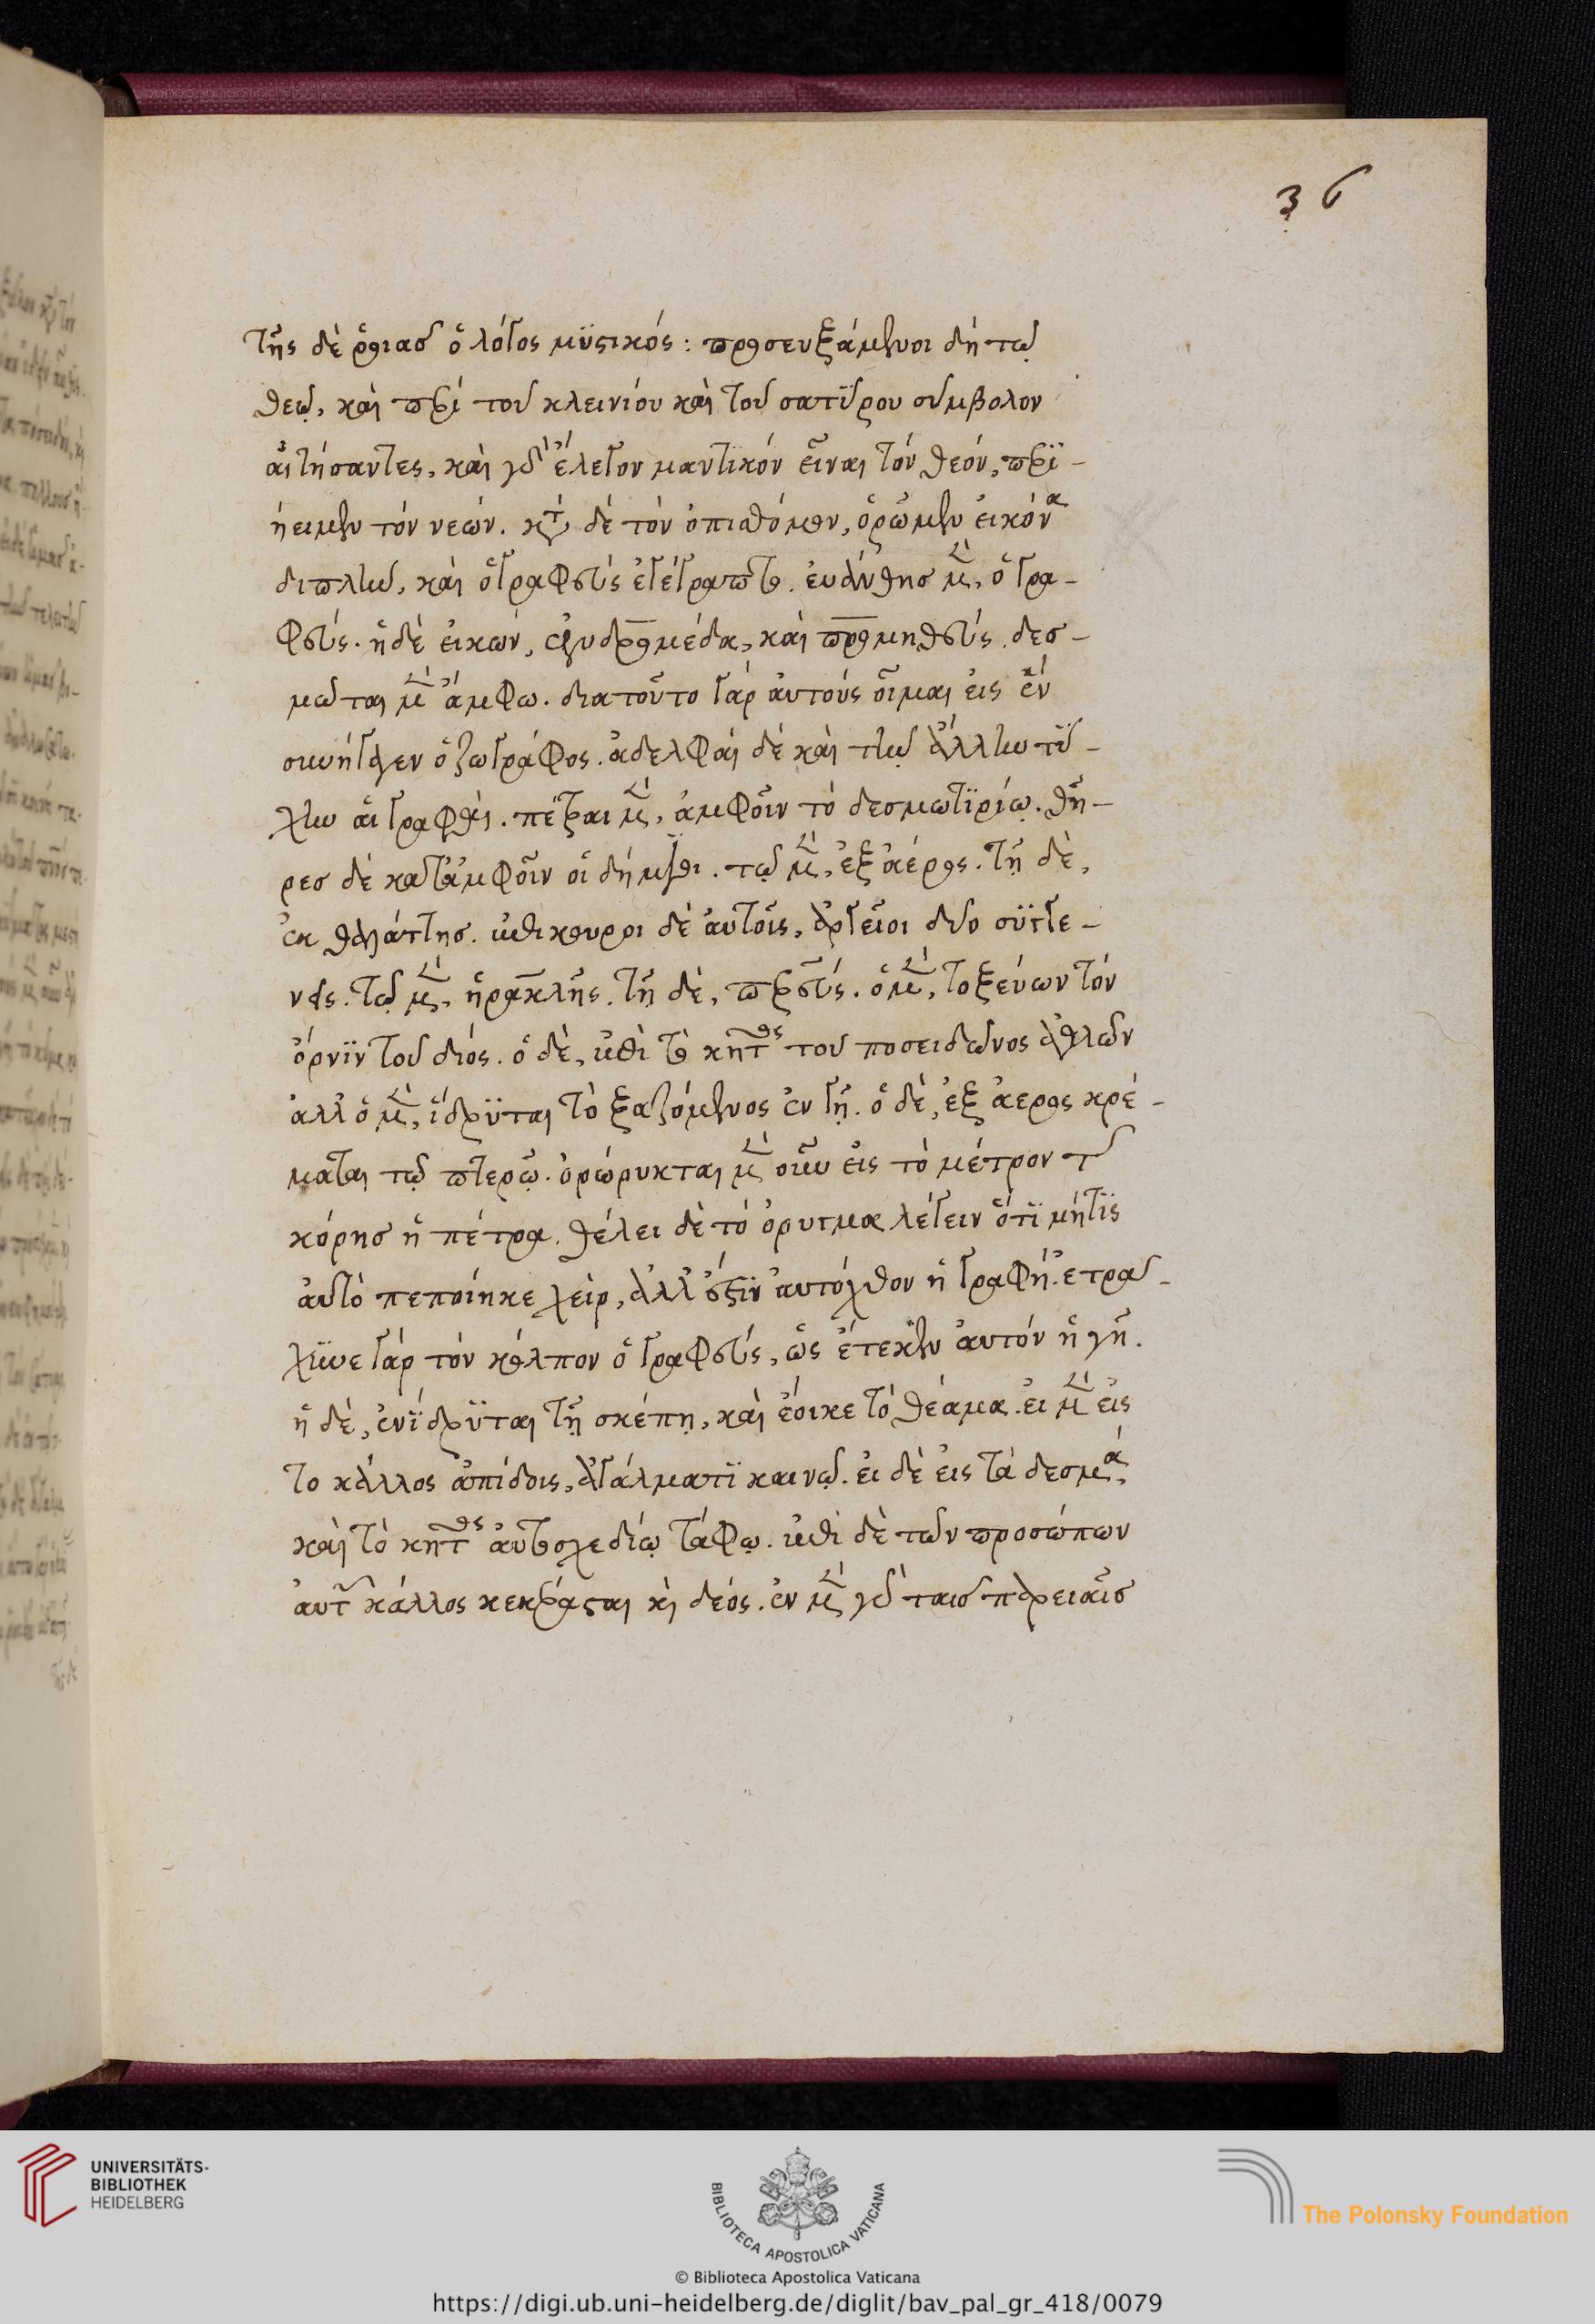 36
τῆς δὲ ῥοιᾶσ ὁ λόγος μϋστικός: προσευξάμενοι δή τῷ
θεῷ, καὶ περί του κλεινίου καὶ τοῦ σατΰρου σύμβολον
αἰτήσαντες, καὶ γὰρ ἔλεγον μαντϊκόν εἶναι τόν θεόν, περϊ-
ήειμεν τόν νεών. κατὰ δέ τόν ὀπισθόδομον, ὁρῶμεν εἰκόνα
διπλῆν, καὶ ὁ γραφεύς ἐγέγραπτο. ἐυάνθησ μὲν, ὁ γρα-
φεύς. ἡ δὲ εἰκών, ἀνδρομέδα, καὶ προμηθεύς. δεσ-
μῶται μὲν ἄμφω. διατοῦτο γάρ ἀυτούς οἶμαι εἰς ἕν
συνήγαγεν ὁ ζωγράφος. ἀδελφαὶ δέ καὶ τὴν ἄλλην τύ-
χην αἱ γραφαὶ. πέτραι μὲν, ἀμφοῖν τὸ δεσμωτϊρίῳ. θῆ-
ρεσ δὲ κατ' ἀμφοῖν οἱ δήμιοι. τῷ μὲν, ἐξ ἀέρος. τῇ δὲ,
ἐκ θαλάττησ. ἐπικουροι δὲ αὐτοῖς, ἀργεῖοι δυο συγγε-
νεῖς. τῷ μὲν, ἡρακλῆς. τῇ δὲ, περσεύς. ὁ μὲν, τοξεύων τόν
ὄρνϊν τοῦ διός. ὁ δὲ, ἐπὶ τὸ κητος του ποσειδῶνος ἀθλῶν
ἀλλ' ὁ μὲν, ἵδρϋται τὸξαζόμενος ἐν γῇ. ὁ δὲ, ἐξ ἀερος κρέ-
μαται τῷ πτερῷ. ὀρώρυκται μὲν οὖν εἰς τὸ μέτρον τῆς
κόρησ ἡ πέτρα. θέλει δὲ τό ὄρυγμα λέγειν ὅτϊ μήτϊς
ἀυτὸ πεποίηκε χείρ, ἀλλ' ἔστϊν ἀυτόχθον ἡ γραφή. ἐτρα-
χϋνε γάρ τόν κόλπον ὁ γραφεύς, ὡς ἔτεκεν ἀυτόν ἡ γῆ.
ἡ δὲ, ἐνΐδρϋται τῇ σκέπῃ, καὶ ἔοικε τό θέαμα. εἰ μὲν εἰς
το κάλλος ἀπίδοις, ἀγάλματϊ καινῷ. εἰ δὲ εἰς τὰ δεσμά,
καὶ τὸ κητος ἀυτοσχεδίῳ τάφῳ. ἐπὶ δὲ τῶν προσώπων
ἀυτῆς κάλλος κεκέρασται κὶ δέος. ἐν μὲν γὰρ ταισ παρειαῖσ
UNIVERSITÄTS-
BIBLIOTHEK
HEIDELBERG
BIBLIOTECA APOSTOLICA VATICANA
The Polonsky Foundation
© Biblioteca Apostolica Vaticana
https://digi.ub.uni-heidelberg.de/diglit/bav_pal_gr_418/0079